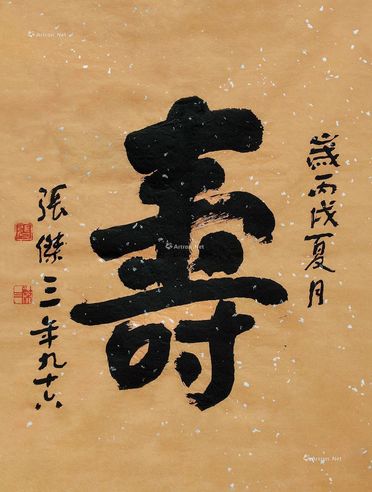 歲丙戌夏月
壽
張傑三年九十八
Artron.Net
Artron.Net
Artron.Net
Artron.Net